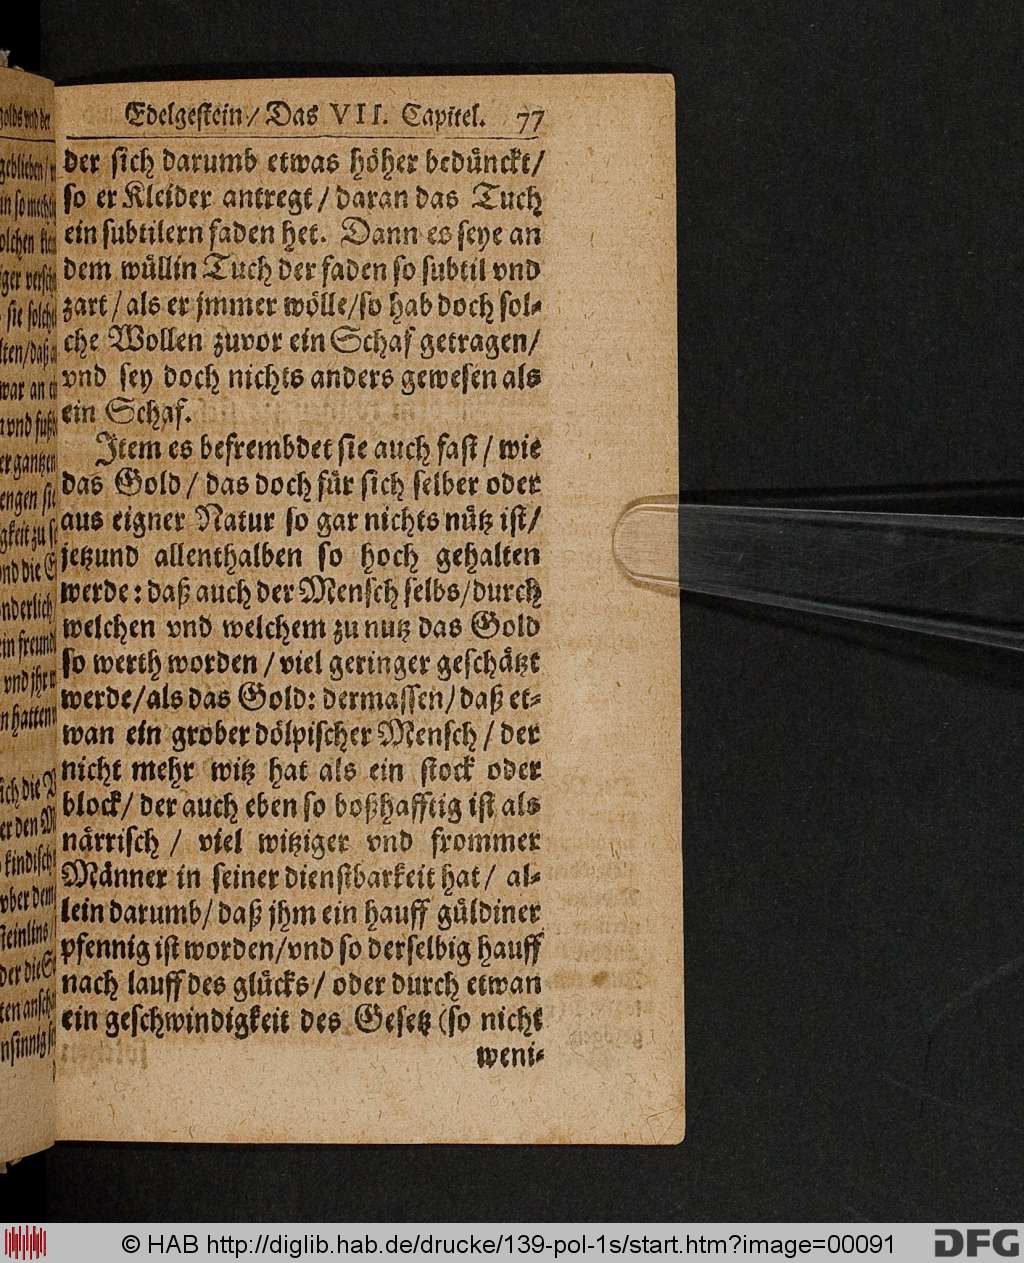 Edelgestein / Das VII. Capitel. 77
der sich darumb etwas höher bedünckt /
so er Kleider antregt / daran das Tuch
ein subtilern faden het. Dann es seye an
dem wüllin Tuch der faden so subtil vnd
zart / als er jmmer wölle / so hab doch sol-
che Wollen zuvor ein Schaf getragen /
vnd sey doch nichts anders gewesen als
ein Schaf.
Item es befrembdet sie auch fast / wie
das Gold / das doch für sich selber oder
aus eigner Natur so gar nichts nütz ist /
jetzund allenthalben so hoch gehalten
werde : daß auch der Mensch selbs / durch
welchen vnd welchem zu nutz das Gold
so werth worden / viel geringer geschätzt
werde / als das Gold : dermassen / daß et-
wan ein grober dölpischer Mensch / der
nicht mehr witz hat als ein stock oder
block / der auch eben so boßhafftig ist als
närrisch / viel witziger vnd frommer
Männer in seiner dienstbarkeit hat / al-
lein darumb / daß jhm ein hauff güldiner
pfennig ist worden / vnd so derselbig hauff
nach lauff des glücks / oder durch etwan
ein geschwindigkeit des Gesetz (so nicht
weni-
© HAB http://diglib.hab.de/drucke/139-pol-1s/start.htm?image=00091
DFG